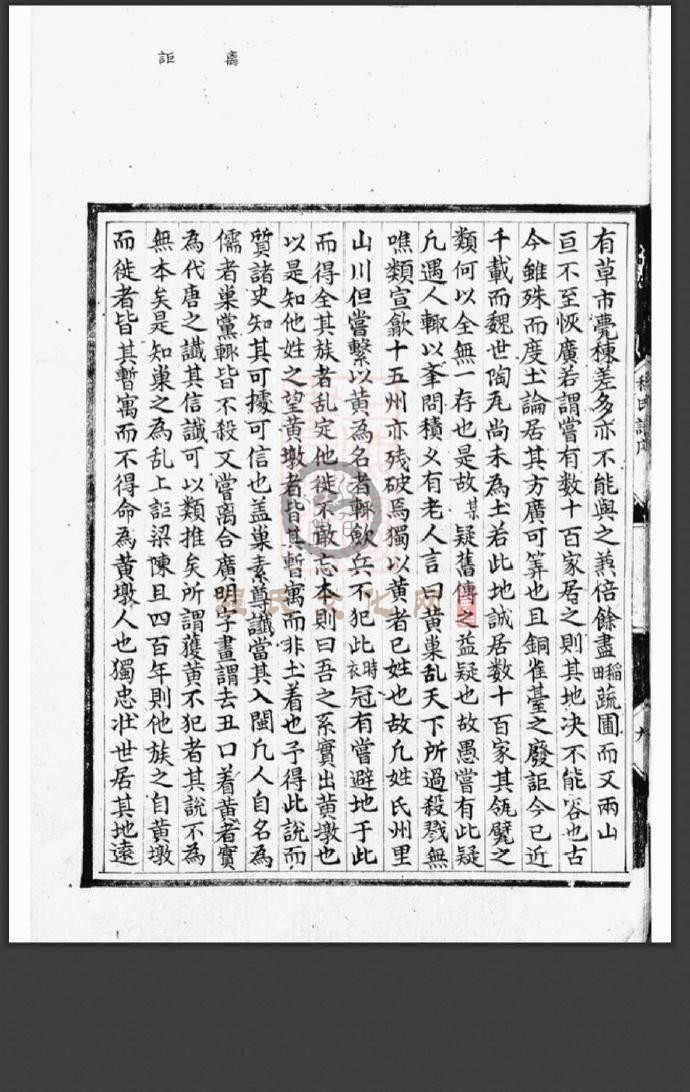 离
詎
有草市甍棟差多亦不能與之㒷倍餘盡稻田蔬圃而又兩山
亘不至恢廣若謂嘗有数十百家居之則其地决不能容也古
今雖殊而度土論居其方廣可筭也且銅雀臺之廢詎今已近
千載而魏世陶瓦尚未為土若此地誠居数十百家其瓴甓之
類何以全無一存也是故某疑舊傳之益疑也故愚嘗有此疑
凢遇人輙以峯問積义有老人言曰黄巢乱天下所過殺戮無
噍類宣歙十五州亦残破焉獨以黄者已姓也故凢姓氏州里
山川但嘗繫以黄為名者輙歛兵不犯此時衣冠有嘗避地于此
而得全其族者乱定他徙不敢忘本則曰吾之系實出黄墩也
以是知他姓之望黄墩者皆其暫寓而非土着也予得此說而
質諸史知其可據可信也盖巢素尊讖當其入閩凢人自名為
儒者巢黨輙皆不殺又嘗离合廣明字畫謂去丑口着黄者實
為代唐之讖其信讖可以類推矣所謂獲黄不犯者其說不為
無本矣是知巢之為乱上詎梁陳且四百年則他族之自黄墩
而徙者皆其暫寓而不得命為黄墩人也獨忠壯世居其地遠
程氏譜序
程氏文化网